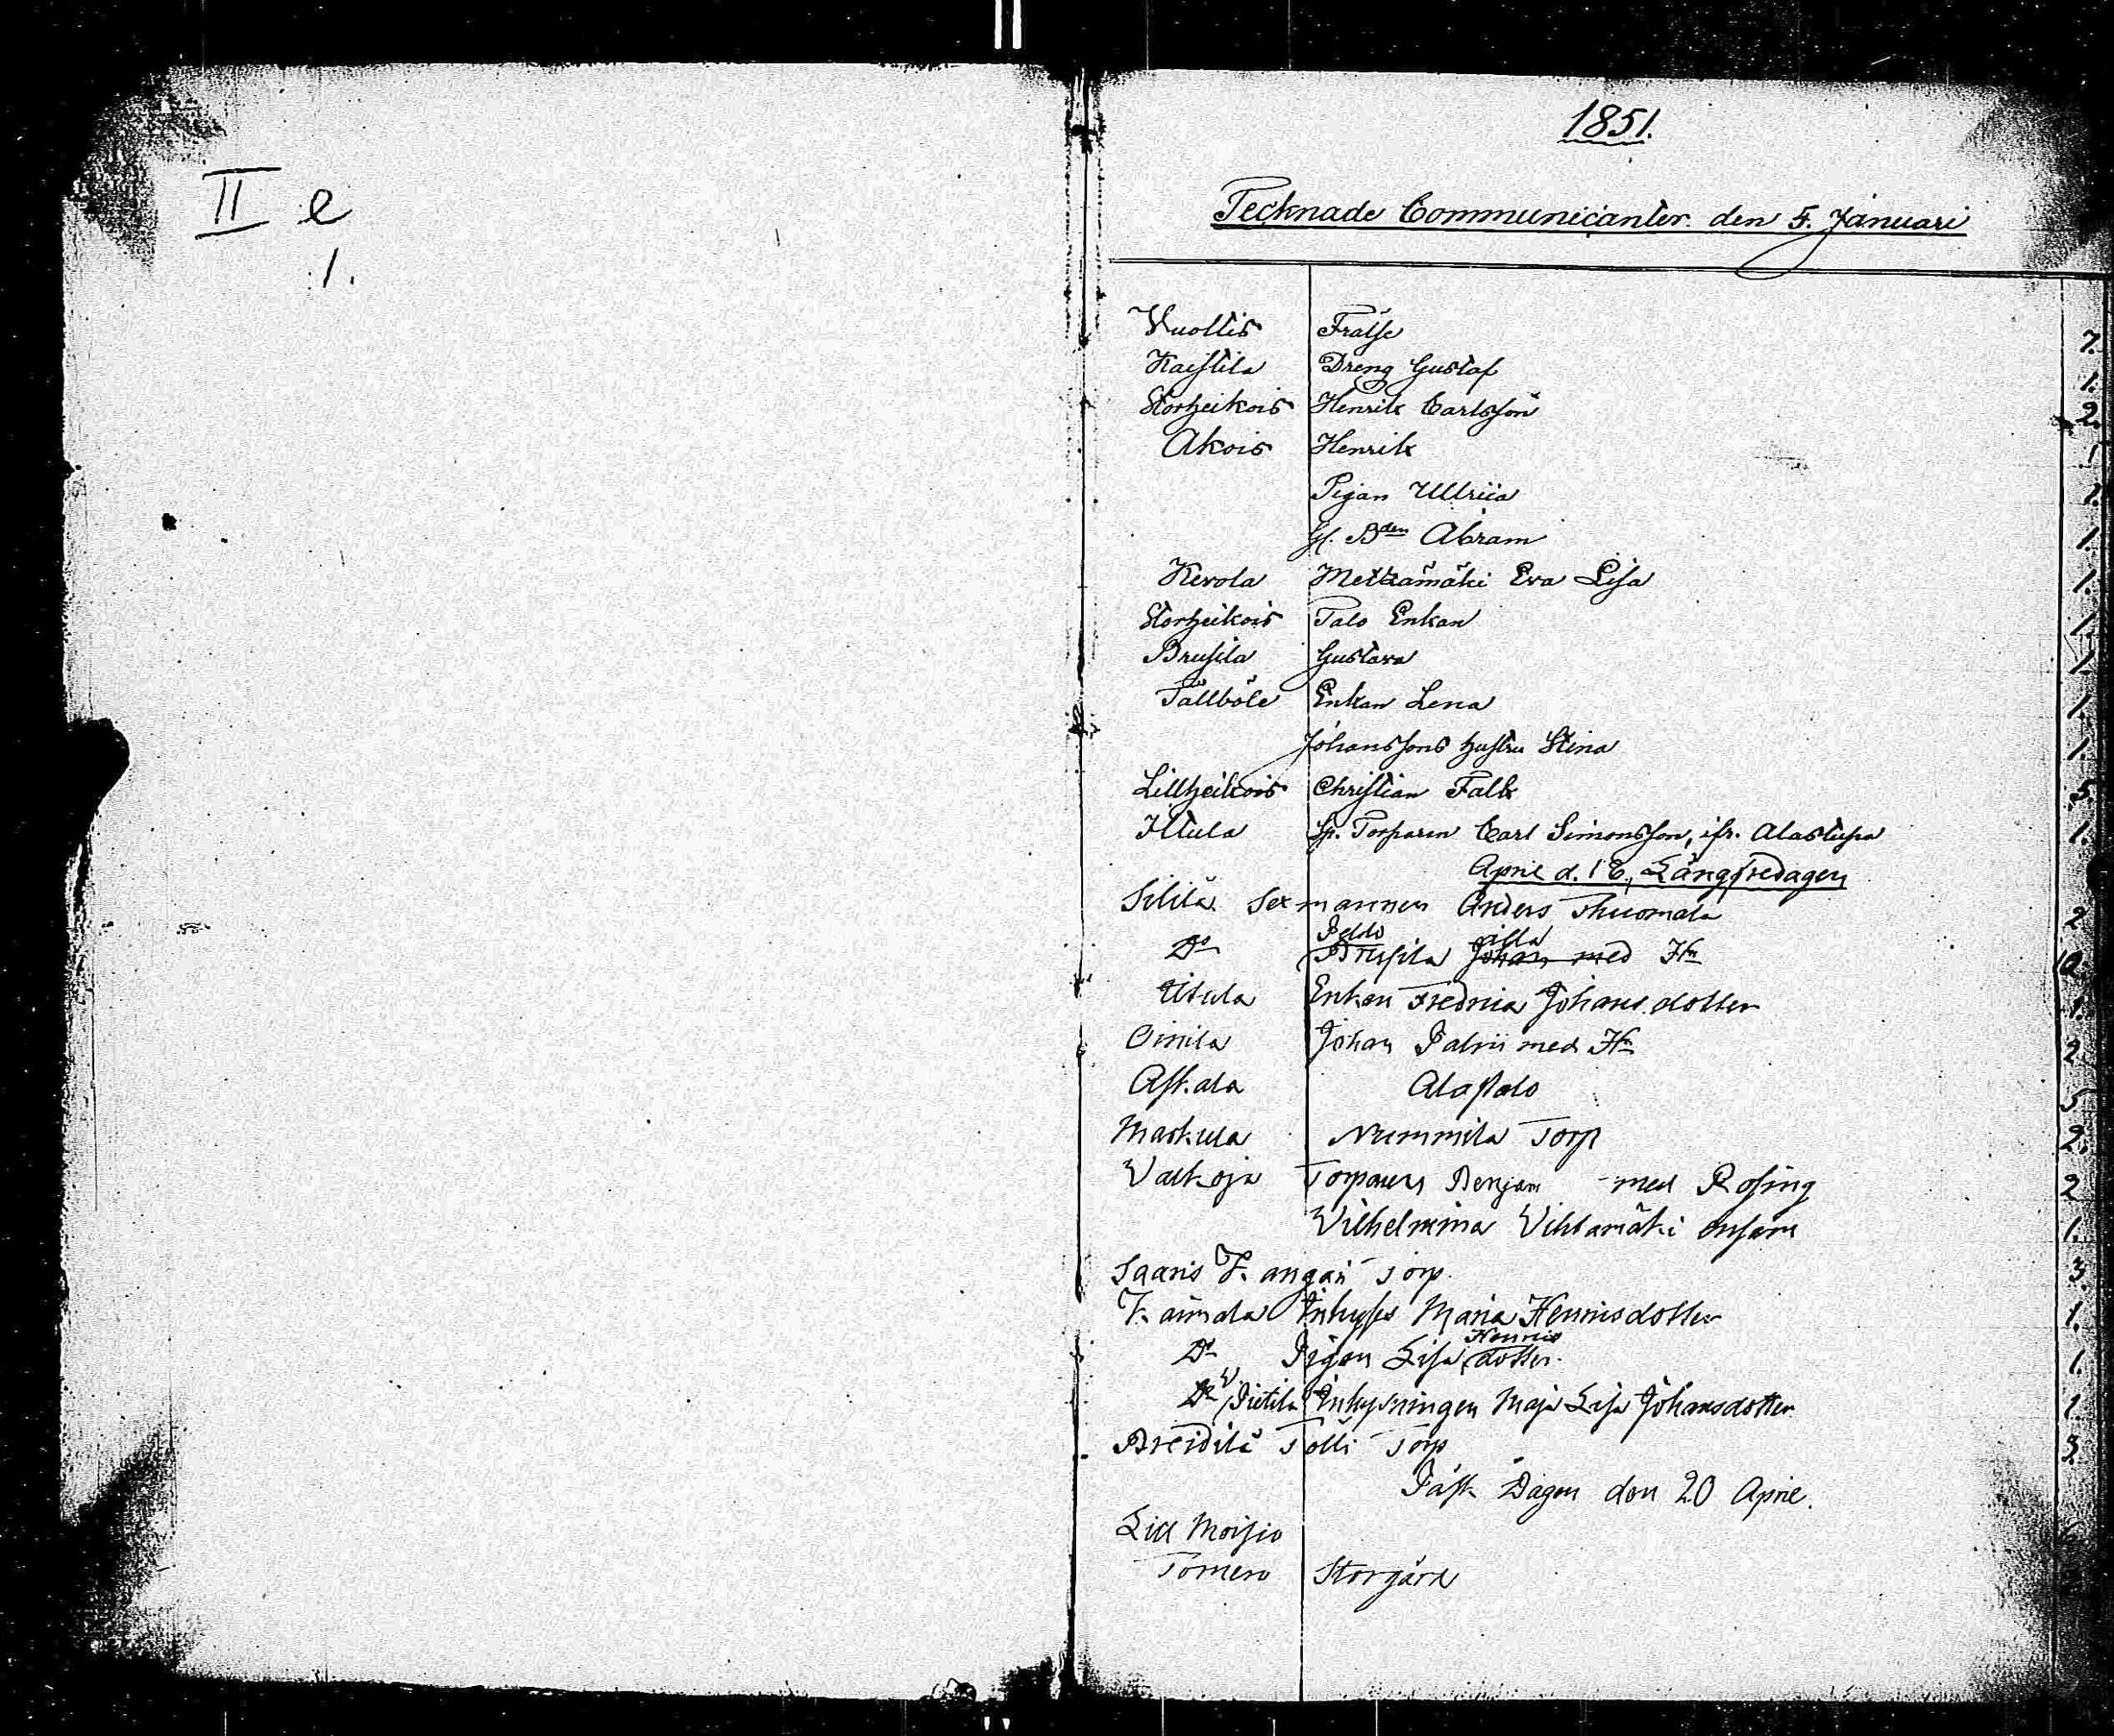 II e
1.
1851.
Tecknade Communicanter den 5. Januari
Vuoltis Frälse 7.
Kaistila Dreng Gustaf 1.
Storheikois Henrik Carlsson 2.
Akois Henrik 1
Pigan Ullrica 1.
gl. Bden Abram 1.
Kerola Metzämäki Eva Lisa 1.
Storheikois Talo Enkan 1.
Brusila Gustava 1.
Tällböle Enkan Lena 1.
Johanssons hustru Stina 1.
Lillheikois Christian Falk 5.
Ittula Sp. Torparen Carl Simonsson, ifr. Alastupa 1.
April d. 18, Långfredagen
Sililä Sexmannen Anders Thuomala 2
Do Peldo Brusila Johan med Hu 10.
Ittula Enkan Fredrica Johans dotter 1.
Oinila Johan Palvii med Hu 2.
Askala Alastalo 5
Markula Nummila Torp 2.
Valkoja Torparen Benjam med Rosina 2
Vilhelmina Vihlamäki ensam 1.
Saaris Kangas Torp. 3.
Inhyses Maria Henricsdotter 1.
Do Pigan Lisa Henrics dotter. 1.
Do Pietilä Inhysningen Maja Lisa Johansdotter 1
Breidilä Tolli Torp 3.
Påsk Dagen den 20 April.
Lill Moisio 6
Tomero Storgård